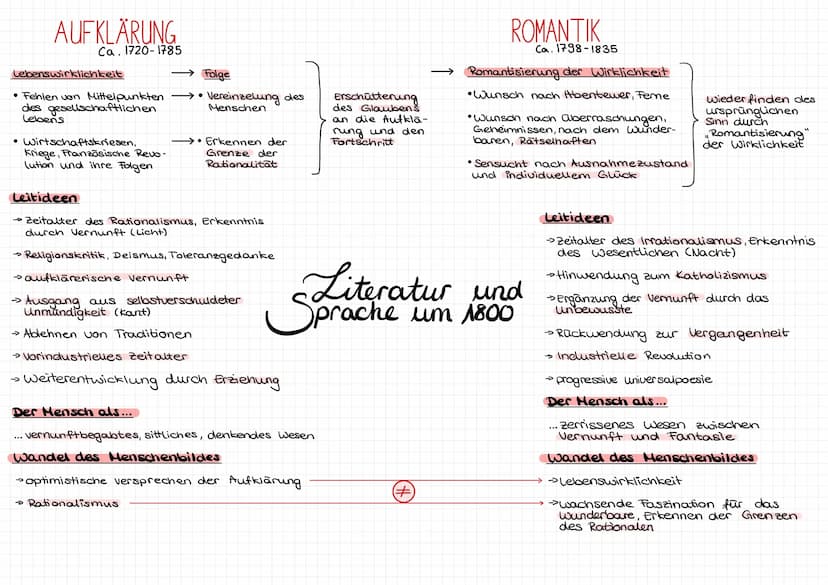 AUFKLÄRUNG
Ca. 1720-1785
Lebenswirklichkeit → Folge
• Fehlen von Mittelpunkten → • Vereinzelung des
des gesellschaftlichen Menschen
Lebens
• Wirtschaftskriesen, → • Erkennen der
Kriege, Französische Revo- Grenze der
lution und ihre Folgen Rationalität
Erschütterung
des Glaubens
an die Aufklä-
rung und den
Fortschritt
Leitideen
→ Zeitalter des Rationalismus, Erkenntnis
durch Vernunft (Licht)
→ Religionskritik, Deismus, Toleranzgedanke
→ aufklärerische Vernunft
→ Ausgang aus selbstverschuldeter
Unmündigkeit (Kant)
→ Ablehnen von Traditionen
→ Vorindustrielles Zeitalter
→ Weiterentwicklung durch Erziehung
Der Mensch als...
... vernunftbegabtes, sittliches, denkendes Wesen
Wandel des Menschenbildes
→ optimistische Versprechen der Aufklärung
→ Rationalismus
≠
Literatur und
Sprache um 1800
ROMANTIK
Ca. 1798-1835
→ Romantisierung der Wirklichkeit
• Wunsch nach Abenteuer, Ferne
• Wunsch nach Überraschungen,
Geheimnissen, nach dem Wunder-
baren, Rätselhaften
• Sensucht nach Ausnahmezustand
und individuellem Glück
Wiederfinden des
ursprünglichen
Sinn durch
„Romantisierung"
der Wirklichkeit
Leitideen
→ Zeitalter des Irrationalismus, Erkenntnis
des Wesentlichen (Nacht)
→ Hinwendung zum Katholizismus
→ Ergänzung der Vernunft durch das
Unbewusste
→ Rückwendung zur Vergangenheit
→ Industrielle Revolution
→ progressive Universalpoesie
Der Mensch als...
... zerrissenes Wesen zwischen
Vernunft und Fantasie
Wandel des Menschenbildes
→ Lebenswirklichkeit
→ wachsende Faszination für das
Wunderbare, Erkennen der Grenzen
des Rationalen